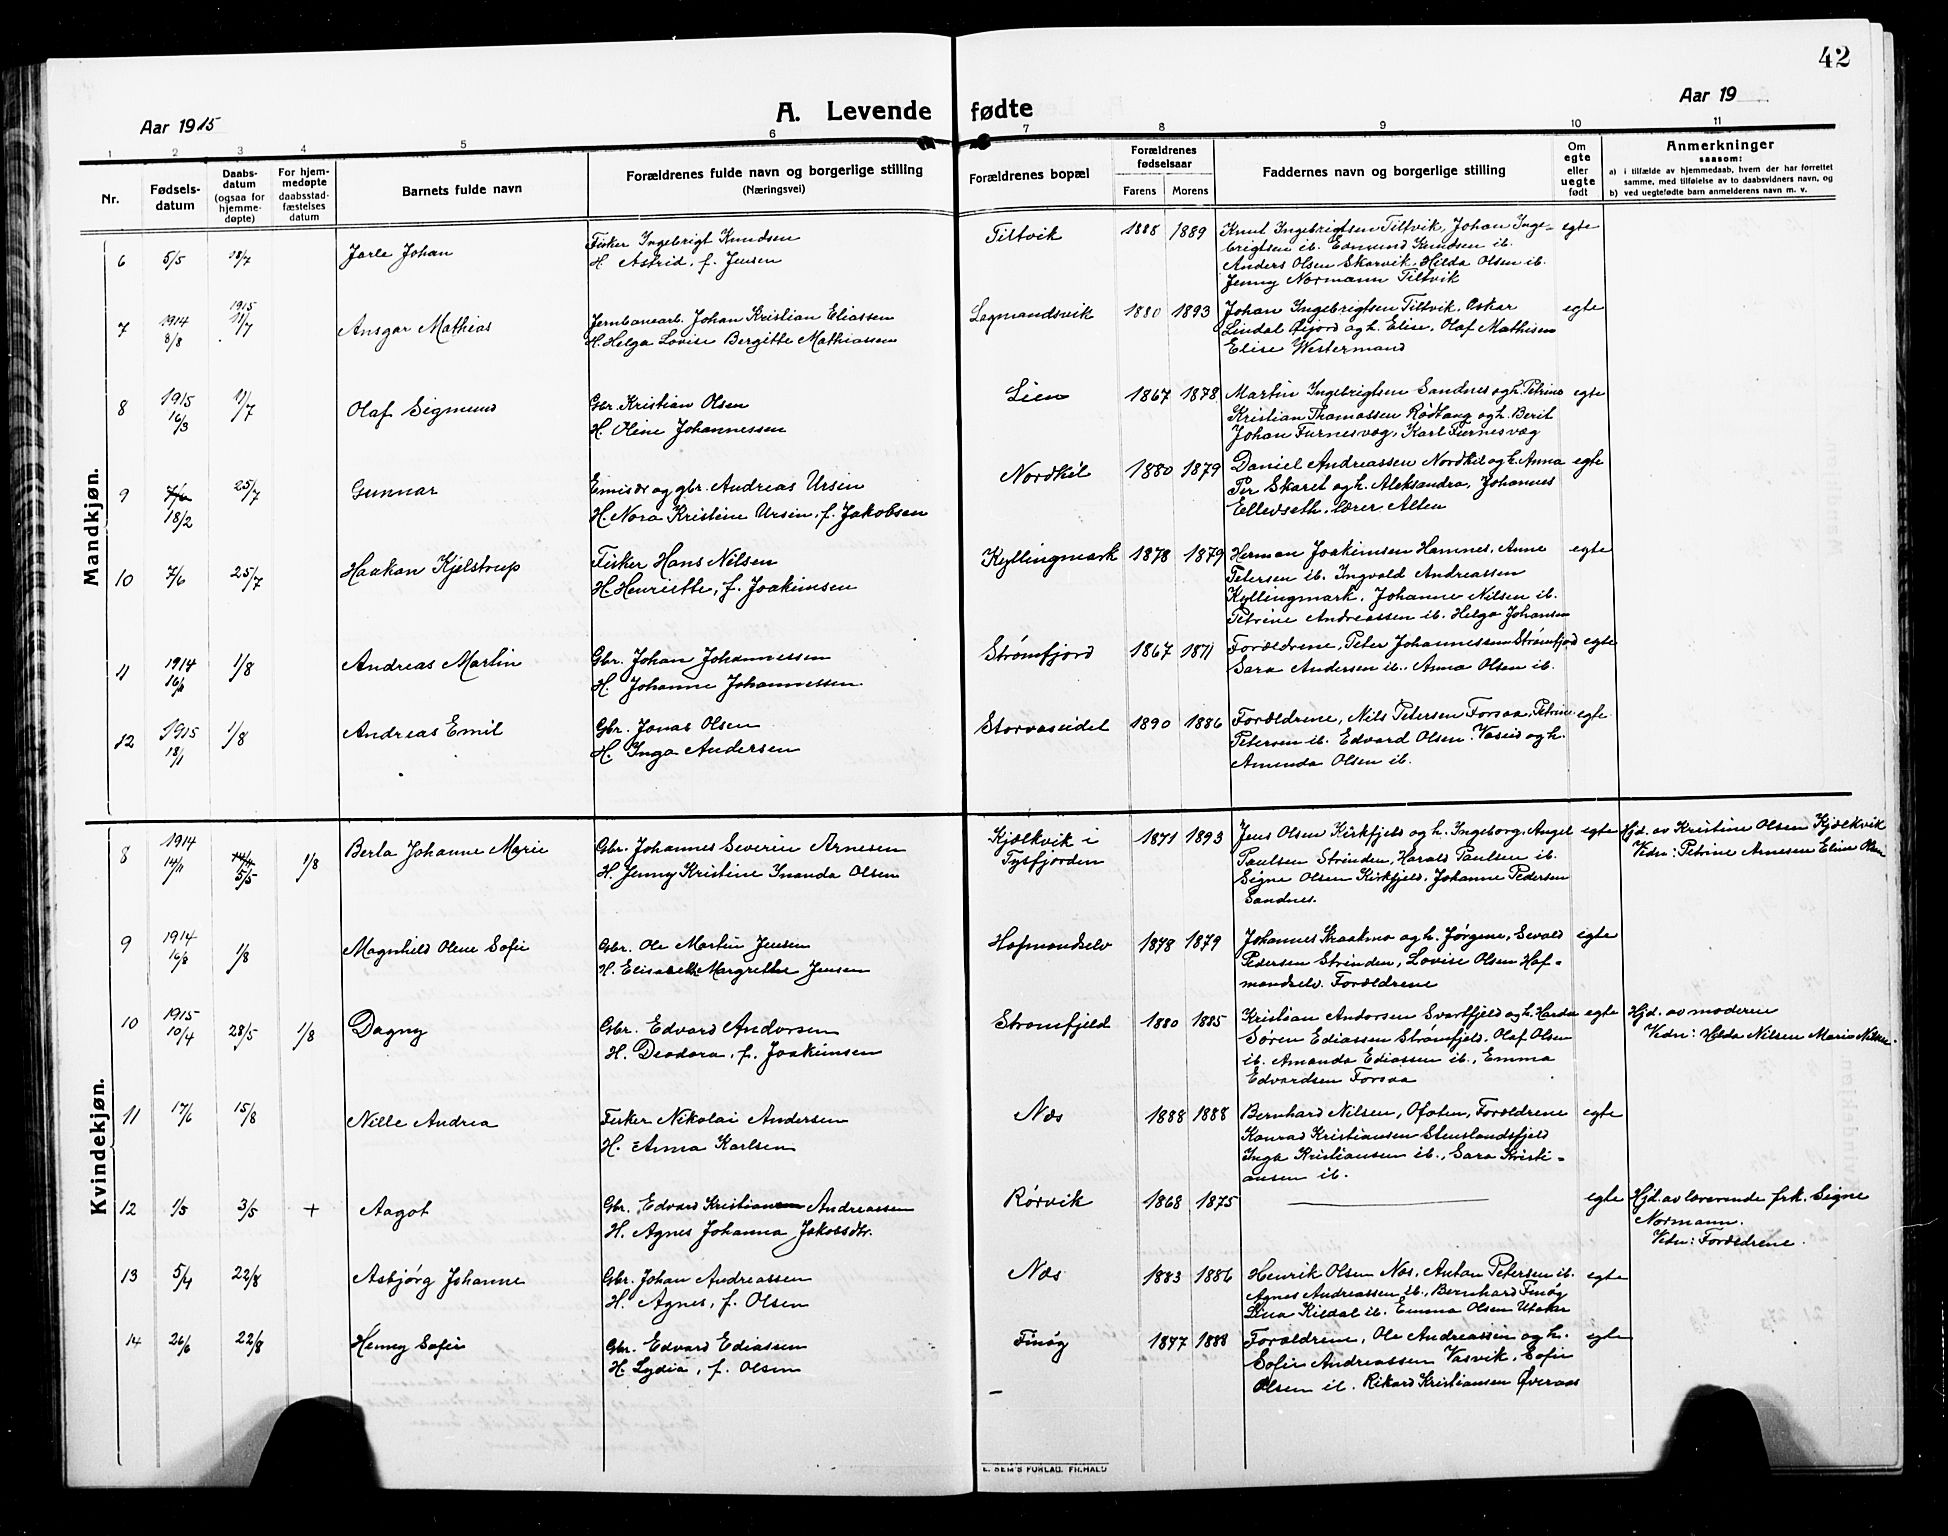 42
Aar 1915
A. Levende fødte
Aar 19
1 2 3 4 5 6 7 8 9 10 11
Nr.
Fødsels-
datum
Daabs-
datum
(ogsaa for
hjemme-
døpte)
For hjem-
medøpte
daabsstad-
fæstelses
datum
Barnets fulde navn
Forældrenes fulde navn og borgerlige stilling
(Næringsvei)
Forældrenes bopæl
Forældrenes
fødselsaar
Farens Morens
Faddernes navn og borgerlige stilling
Om
egte
eller
uegte
født
Anmerkninger
saasom:
a) i tilfælde av hjemmedaab, hvem der har forrettet
samme, med tilføielse av to daabsvidners navn, og
b) ved uegtefødte barn anmelderens navn m. v.
Mandkjøn.
6 5/5 Jarle Johan
Fisker Ingebrigt Knudsen
H. Astrid, f. Jensen
Tiltvik 1888 1889
Knut Ingebrigtsen Tiltvik, Johan Inge-
brigtsen ib. Edmund Knudsen ib.
Anders Olsen Skarvik, Hilda Olsen ib.
Jenny Normann Tiltvik
egte
7 1914 8/8 1915 11/7 Ansgar Mathias
Jernbanearb. Johan Kristian Eliassen
H. Helga Lovise Bergitte Mathiassen
Lagmandsvik 1880 1893
Johan Ingebrigtsen Tiltvik, Oskar
Lindal og h. Elise, Olaf Mathisen
Elise Westermand
egte
8 1915 16/3 11/7 Olaf Sigmund
Gbr. Kristian Olsen
H. Oline Johannessen
Lien 1867 1878
Martin Ingebrigtsen Sandnes og h. Petrine
Kristian Thomassen Rødtang og h. Berit
Johan Furnesvæg, Karl Furnesvæg
egte
9 18/2 25/7 Gunnar
Emisær og gbr. Andreas Ursin
H. Nora Kristine Ursin, f. Jakobsen
Nordkil 1880 1879
Daniel Andreassen Nordkil og h. Anna
Per Skaret og h. Aleksandra, Johannes
Ellevseth, lærer, Alten
egte
10 7/6 25/7 Haakon Kjelstrup
Fisker Hans Nilsen
H. Henriette, f. Joakimsen
Kyllingmark 1878 1879
Herman Joakimsen Hamnes, Anne
Petersen ib. Ingvald Andreassen
Kyllingmark, Johanne Nilsen ib.
Petrine Andreassen ib. Helga Johansen
egte
11 1914 1/8 Andreas Martin
Gbr. Johan Johannessen
H. Johanne Johannessen
Strømfjord 1867 1871
Forældrene, Peter Johannessen Strømfjord
Sara Andersen ib. Anna Olsen ib.
egte
12 1915 18/1 1/8 Andreas Emil
Gbr. Jonas Olsen
H. Inga Andersen
Storvaseidet 1890 1886
Forældrene, Nils Petersen Forsaa, Petrine
Petersen ib. Edvard Olsen Vaseid og h.
Amanda Olsen ib.
egte
Kvindekjøn.
8 1914 14/11 5/5 1/8 Berta Johanne Marie
Gbr. Johannes Severin Arnesen
H. Jenny Kristine Inanda Olsen
Kjælkvik i
Tysfjorden
1871 1893
Jens Olsen Kirkfjeld og h. Ingeborg, Angel
Paulsen Strinden, Harald Paulsen ib.
Signe Olsen Kirkfjeld, Johanne Pedersen
Sandnes.
egte
Hjd. av Kristine Olsen Kjælkvik
Vidn: Petrine Arnesen Eline Olsen
9 1914 16/8 1/8 Magnhild Olene Sofie
Gbr. Ole Martin Jensen
H. Elisabeth Margrethe Jensen
Hofmandselv 1878 1879
Johannes Kraakmo og h. Jørgine, Sevald
Pedersen Strinden, Lovise Olsen Hof-
mandselv. Forældrene
egte
10 1915 10/4 28/5 1/8 Dagny
Gbr. Edvard Andorsen
H. Deodora, f. Joakimsen
Strømfjeld 1880 1885
Kristian Andorsen Svartfjeld og h. Harda
Søren Ediassen Strømfjeld, Olaf Olsen
ib. Amanda Ediassen ib., Emma
Edvardsen Forsaa
egte
Hjd. av moderen
Vidn: Helda Nilsen Maria Nilsen.
11 17/6 15/8 Nille Andrea
Fisker Nikolai Andersen
H. Anna Karlsen
Næs 1888 1888
Bernhard Nilsen, Ofoten, Forældrene
Konrad Kristiansen Stenslandsfjeld
Inga Kristiansen ib., Sara Kristi-
ansen ib.
egte
12 1/5 3/5 + Aagot
Gbr. Edvard Kristian Andreassen
H. Agnes Johanna Jakobsdtr.
Rørvik 1868 1875
egte
Hjd. av lærerinde frk. Signe
Normann.
Vidn: Forældrene.
13 5/4 22/8 Asbjørg Johanne
Gbr. Johan Andreassen
H. Agnes, f. Olsen
Næs 1883 1886
Henrik Olsen Næs, Anton Petersen ib.
Agnes Andreassen ib., Bernhard Finøy
Lina Kildal ib. Emma Olsen Utaker
egte
14 26/6 22/8 Henny Sofie
Gbr. Edvard Ediassen
H. Lydia, f. Olsen
Finøy 1877 1888
Forældrene, Ole Andreassen og h.
Sofie Andreassen Vasvik, Sofie
Olsen ib. Rikard Kristiansen Øveraas
egte
E. SEM'S FORLAG, FR.HALD